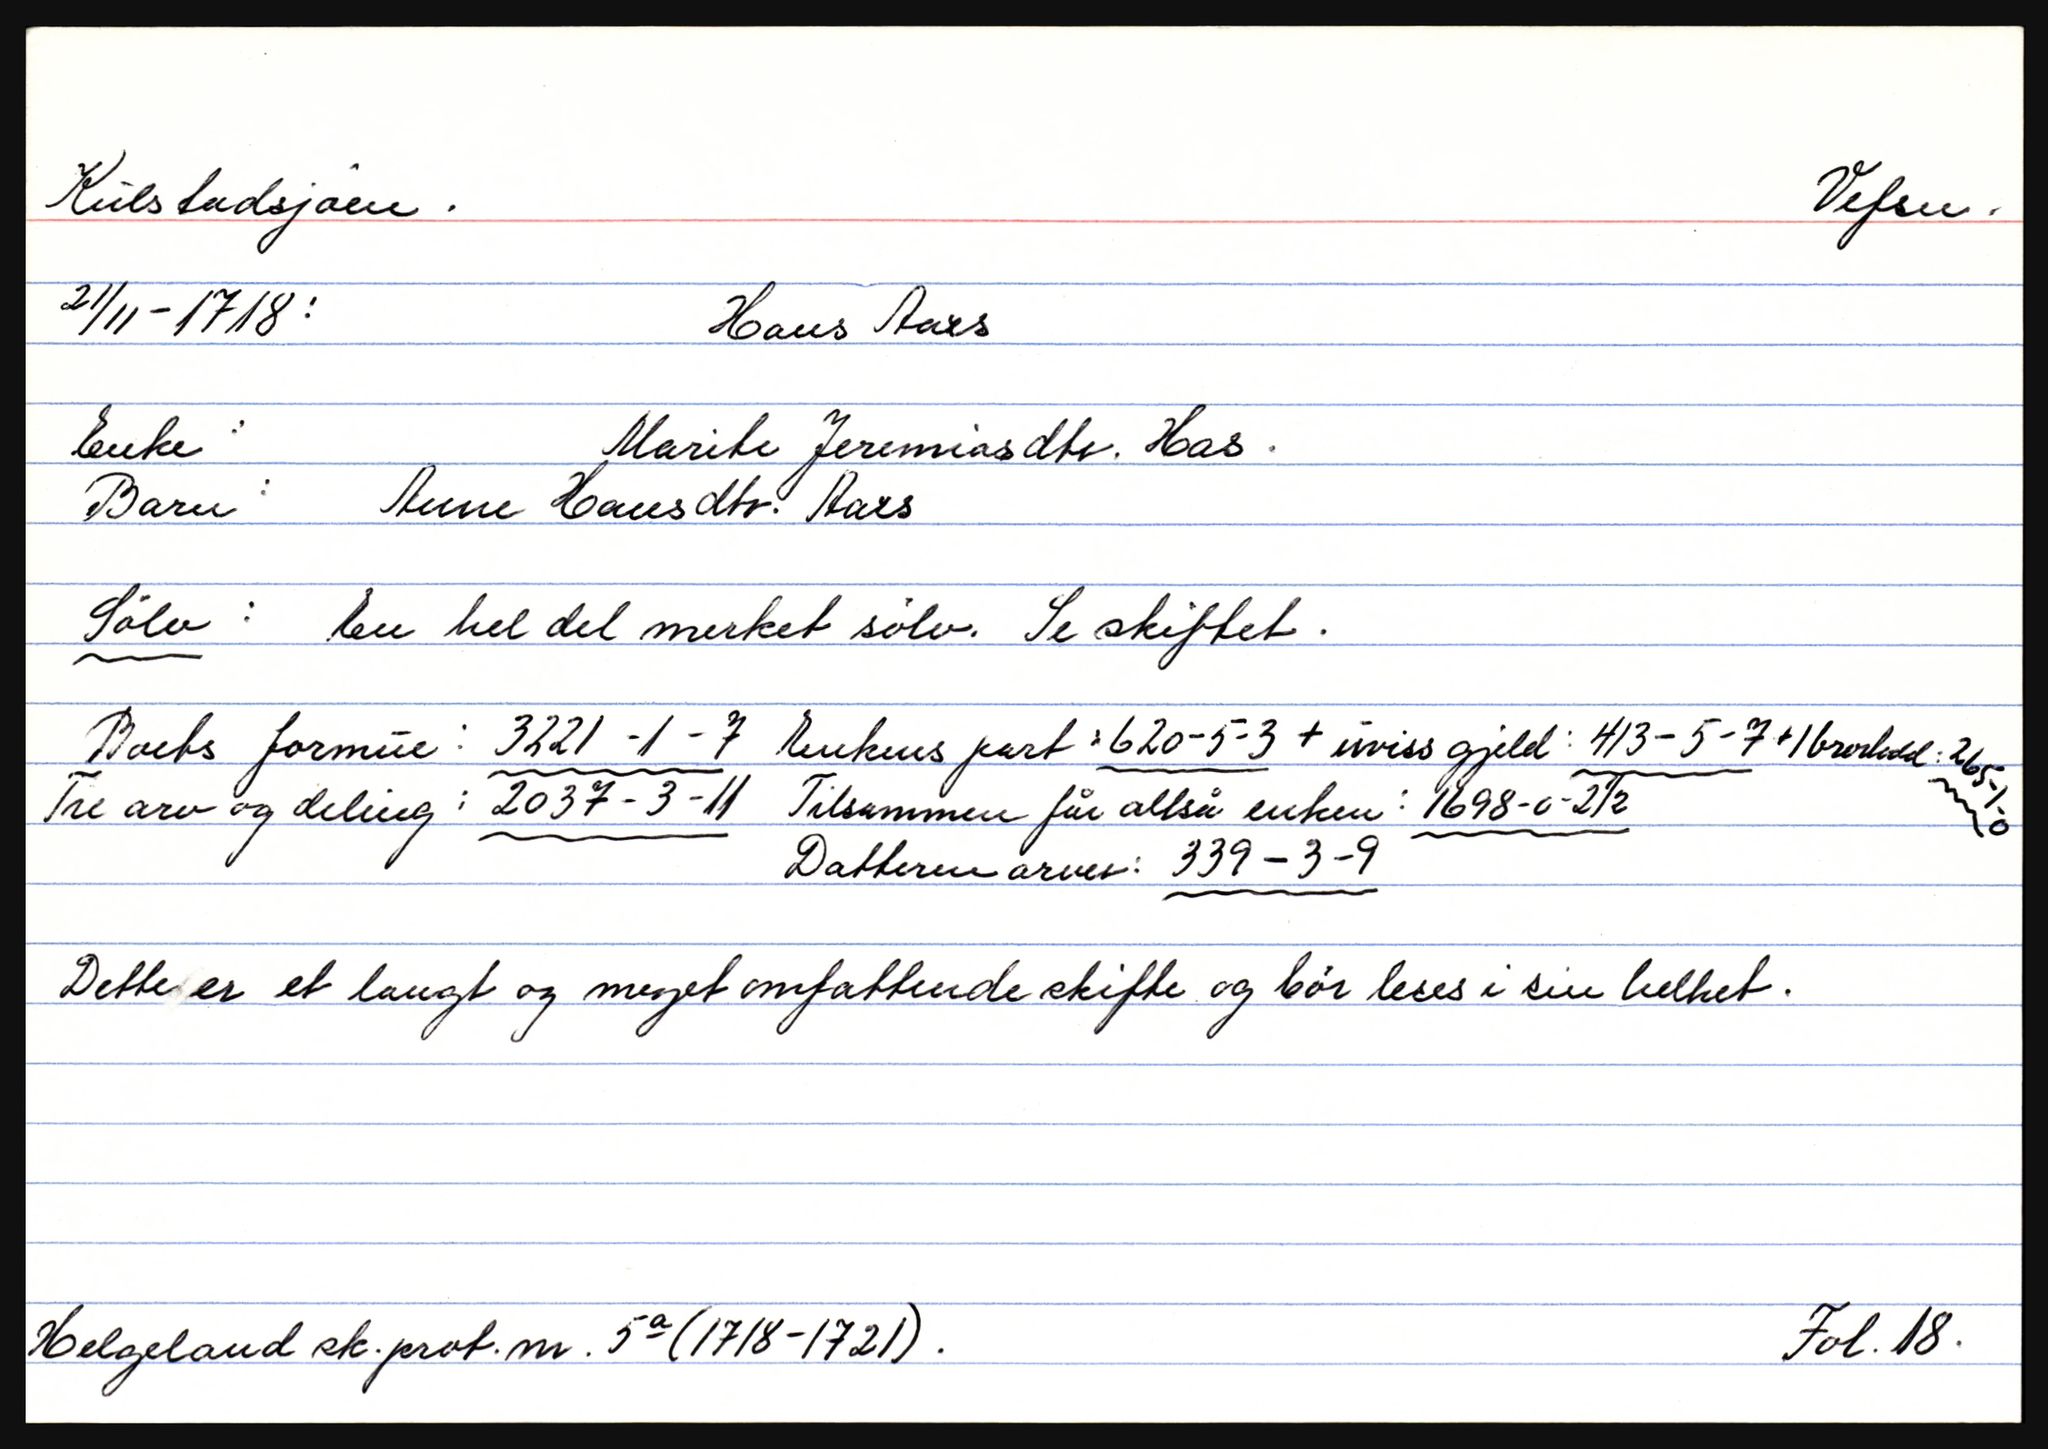 Kulstadsjöen. Vefsn.
21/11-1718: Hans Aars
Enke: Marite Jeremiasdtr. Has.
Barn: Anne Hansdtr. Aars
Sölv: En hel del merket sölv. Se skiftet.
Boets formue: 3221-1-7 Enkens part: 620-5-3 + uviss gjeld: 413-5-7 + 1 brorlodd: 265-1-0
Tre arv og deling: 2037-3-11 Tilsammen får altså enken: 1698-0-2 1/2
Datteren arver: 339-3-9
Dette er et langt og meget omfattende skifte og bör leses i sin helhet.
Helgeland sk. prot. nr. 5a (1718-1721). Fol. 18.